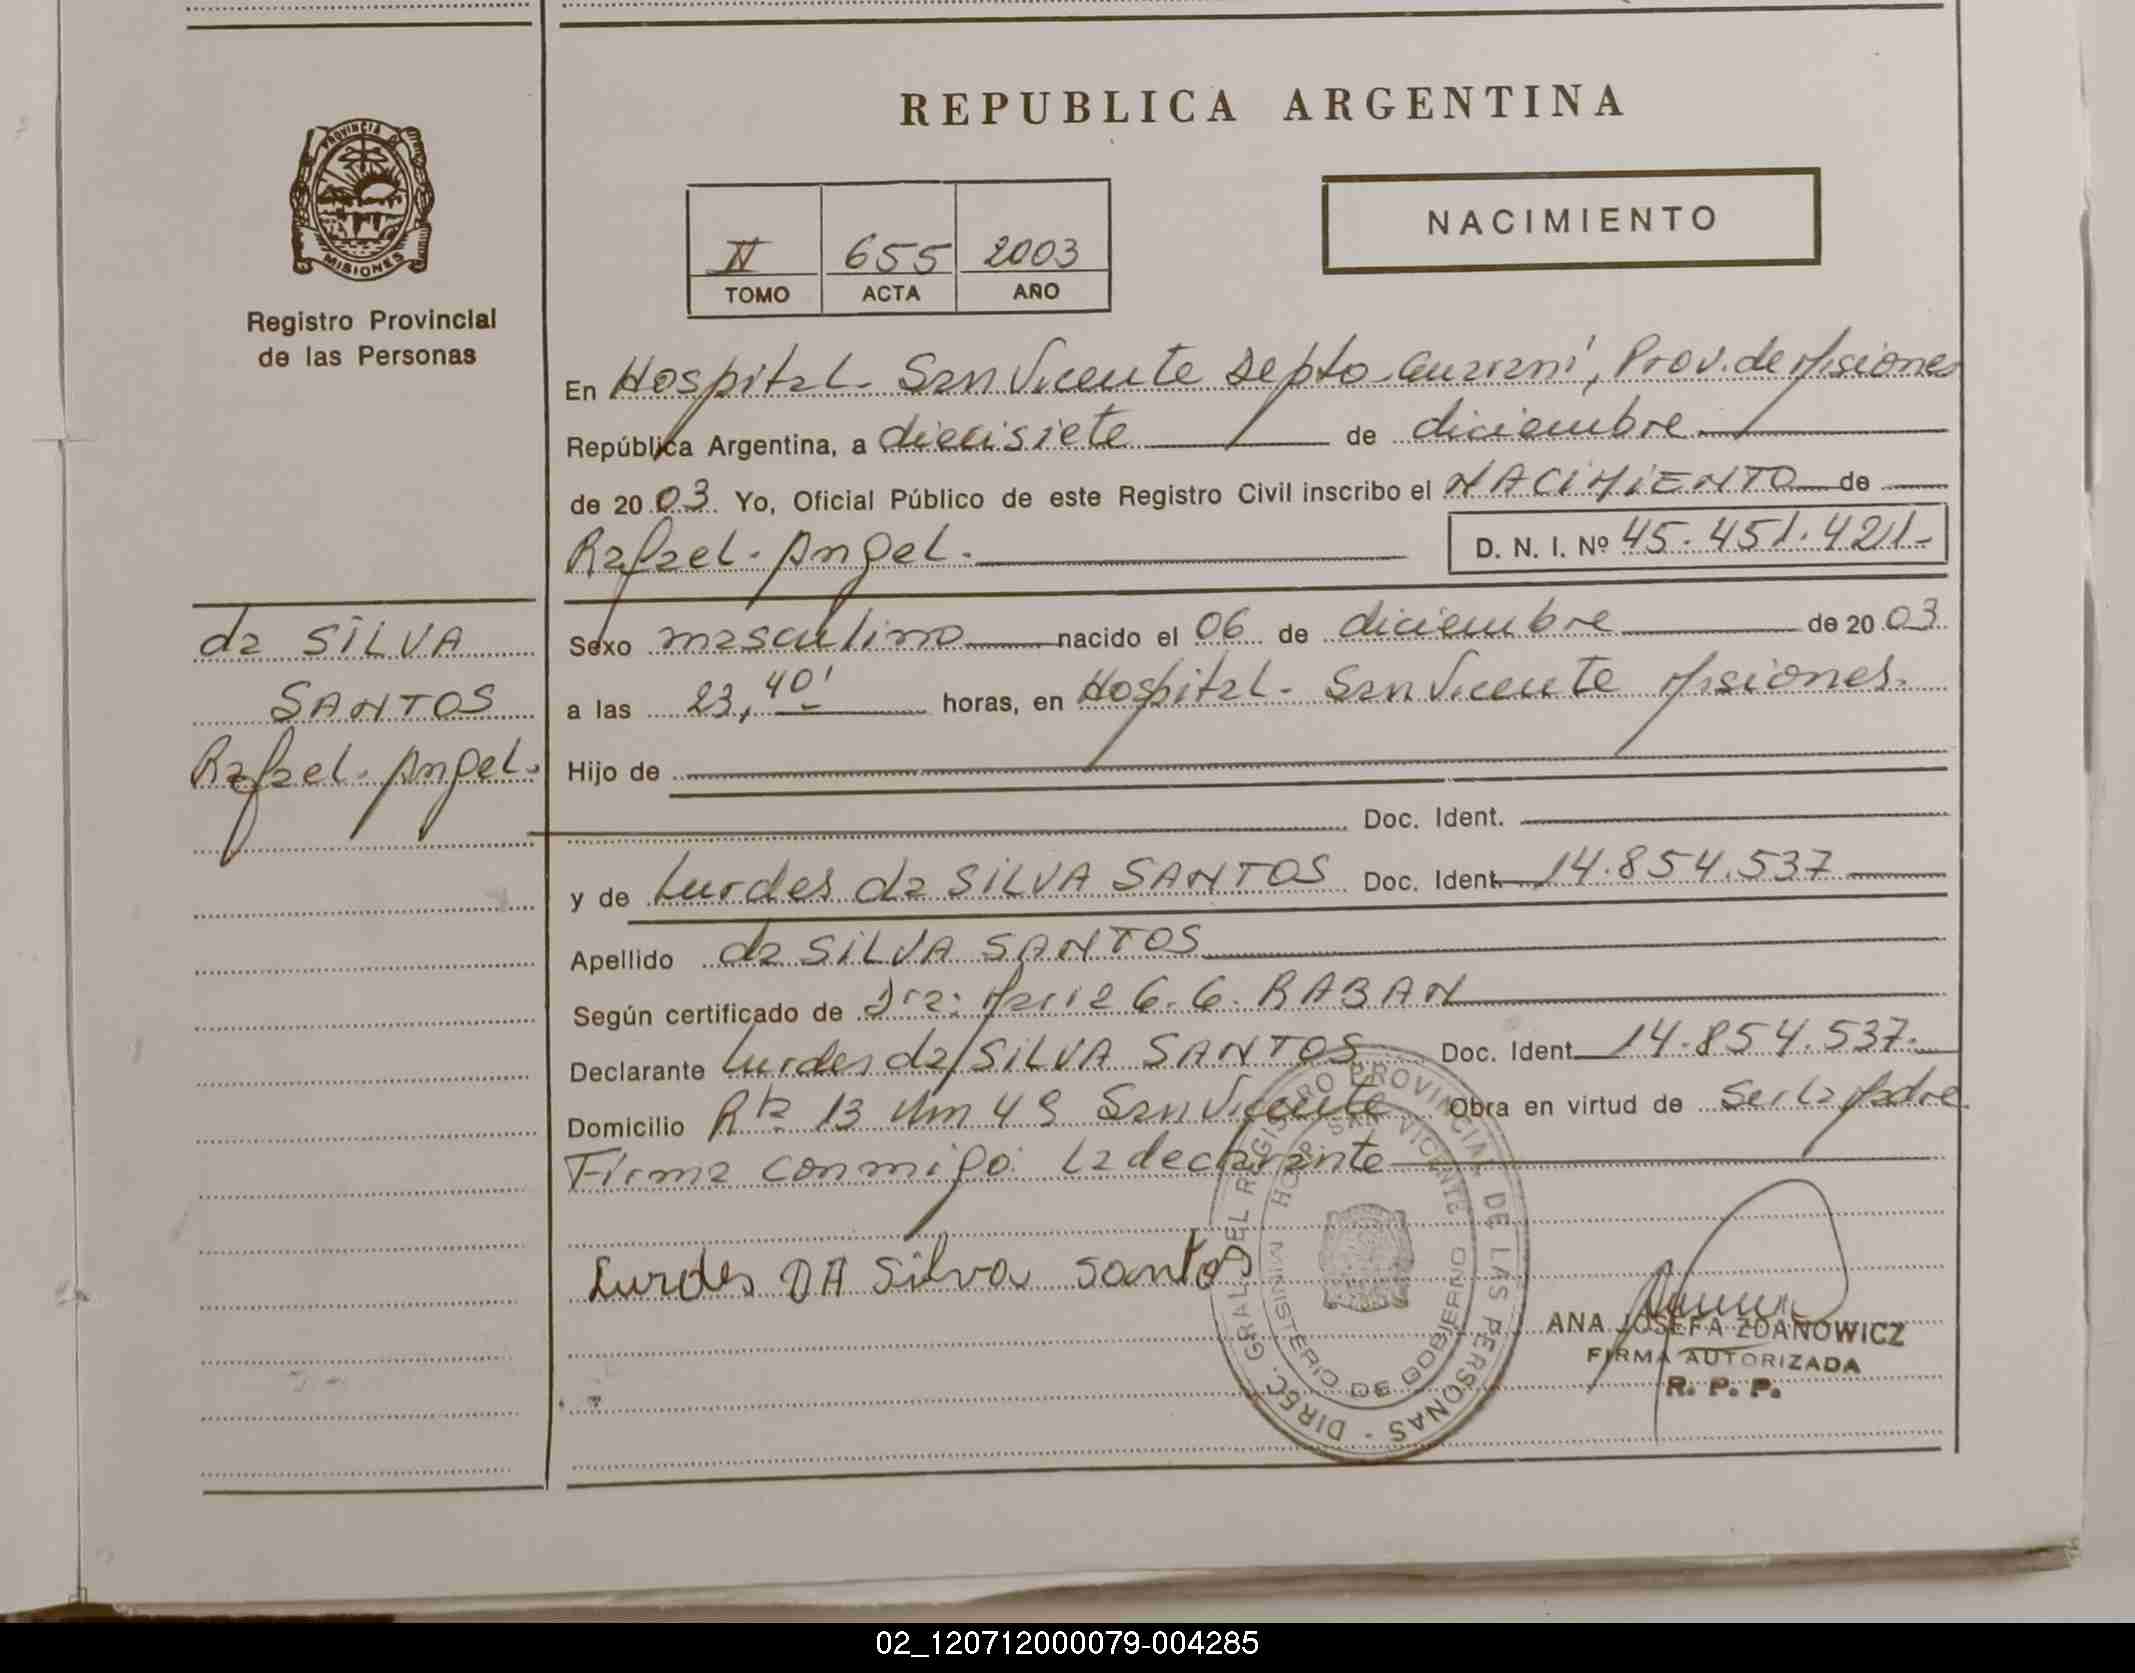 REPUBLICA ARGENTINA
PROVINCIA DE
MISIONES
Registro Provincial
de las Personas
II 655 2003
TOMO ACTA AÑO
NACIMIENTO
En Hospital San Vicente Depto Guaraní, Prov. de Misiones
República Argentina, a diecisiete de diciembre
de 2003 Yo, Oficial Público de este Registro Civil inscribo el NACIMIENTO de
Rafael Angel. D. N. I. Nº 45.451.421-
da SILVA
SANTOS
Rafael Angel.
Sexo masculino nacido el 06 de diciembre de 2003
a las 23, 40' horas, en Hospital San Vicente Misiones.
Hijo de
Doc. Ident.
y de Lurdes da SILVA SANTOS Doc. Ident. 14.854.537
Apellido da SILVA SANTOS
Según certificado de Dra: Maria G. G. RABAN
Declarante Lurdes da SILVA SANTOS Doc. Ident. 14.854.537.
Domicilio Rta 13 Km 49 San Vicente Obra en virtud de Ser la Madre
Firma conmigo: La declarante
Lurdes DA Silva Santos
DIREC. GRAL. DEL REGISTRO PROVINCIAL DE LAS PERSONAS -
HOSP. SAN VICENTE
MINISTERIO DE GOBIERNO
ANA JOSEFA ZDANOWICZ
FIRMA AUTORIZADA
R. P. P.
02_120712000079-004285